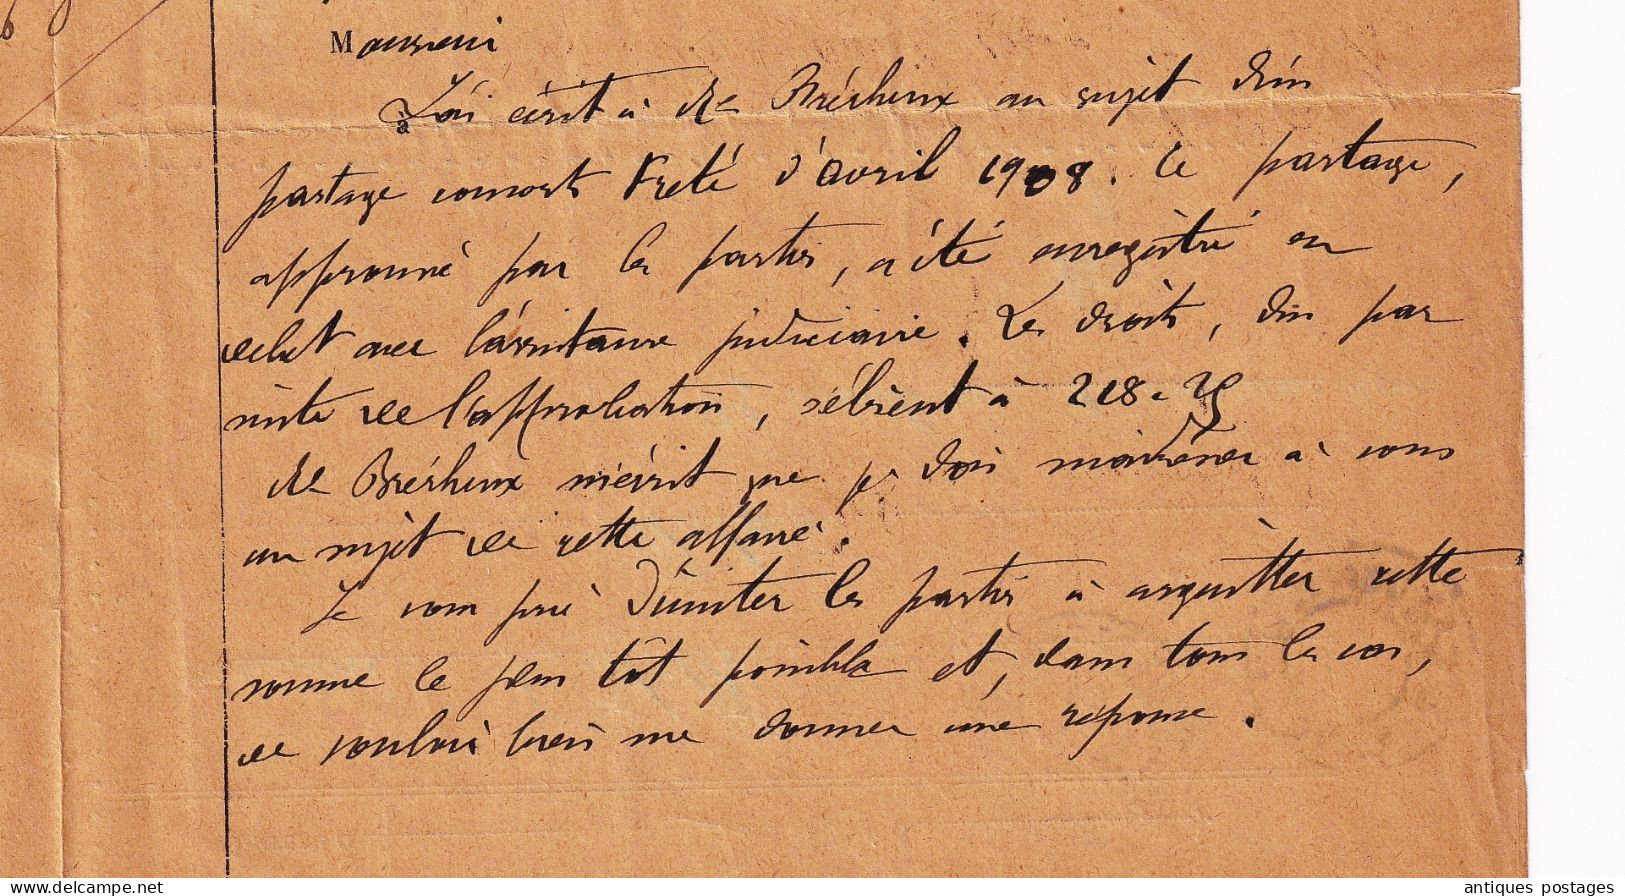 Monsieur
à
J'ai écrit à Me Brécheux au sujet d'un
partage consorts Freté d'avril 1908. Ce partage,
approuvé par les parties, a été enregistré en
débet avec l'assistance judiciaire. Les droits, dûs par
suite de l'approbation, s'élèvent à 218.75
Me Brécheux m'écrit que je dois m'adresser à vous
au sujet de cette affaire.
Je vous prie d'inviter les parties à acquitter cette
somme le plus tôt possible et, dans tous les cas,
de vouloir bien me donner une réponse.
antiques postages